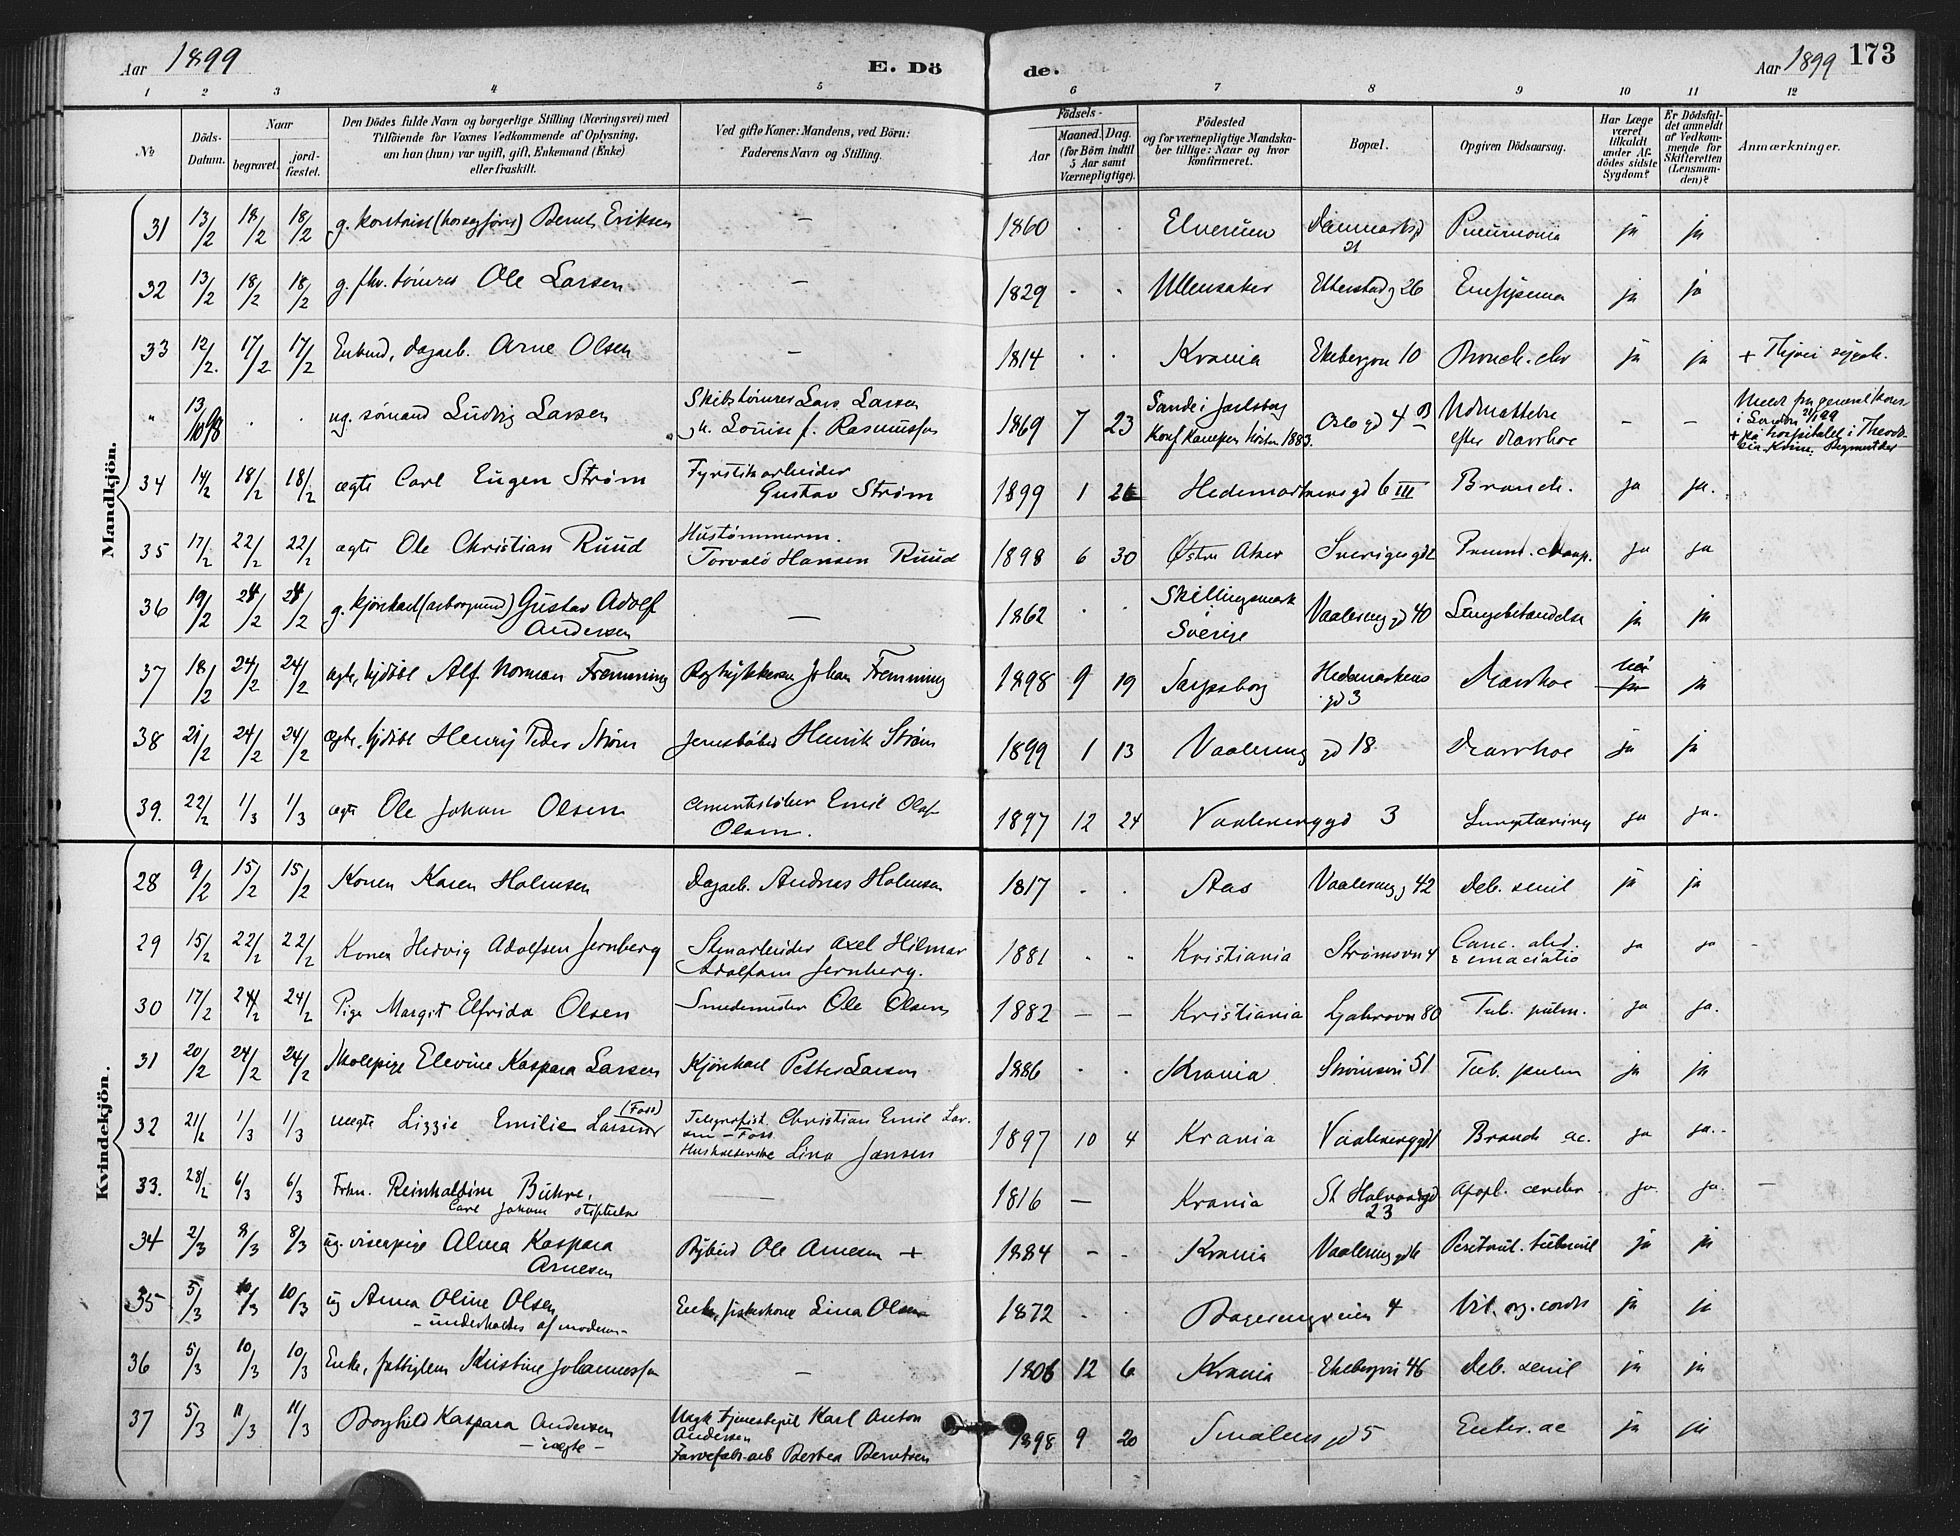 Aar 1899 E. Dö de. Aar 1899 173
1 2 3 4 5 6 7 8 9 10 11 12
No. Döds-Datum. Naar begravet. jordfæstet. Den Dödes fulde Navn og borgerlige Stilling (Næringsvei) med Tilföiende for Voxnes Vedkommende af Oplysning, om han (hun) var ugift, gift, Enkemand (Enke) eller fraskilt. Ved gifte Koner: Mandens, ved Börn: Faderens Navn og Stilling. Födsels- Aar Maaned. Dag. (for Börn indtil 5 Aar samt Værnepligtige). Födested og for værnepligtige Mandskaber tillige: Naar og hvor konfirmeret. Bopæl. Opgiven Dödsaarsag. Har Læge været tilkaldt under Afdödes sidste Sygdom? Er Dödsfaldet anmeldt af Vedkommende for Skifteretten (Lensmanden)? Anmærkninger.
Mandkjön.
31 13/2 18/2 18/2 g. Bernh. Eriksen — 1860 . . Elverum Danmarksgd 21 Pneumonia ja ja
32 13/2 18/2 18/2 g. fhv. tømrer Ole Larsen — 1829 . . Ullensaker Etterstadg 26 Emfysema ja ja
33 12/2. 17/2 17/2 Enkemd, dagarb. Arne Olsen — 1814 . . Krania Ekebergvn 10 Bronch. chr ja ja +
" 13/10 98 . . ug. sømand Ludvig Larsen Skibstømrer Lars Larsen og h. Louise f. Rasmussen 1869 7 23 Sande i Jarlsberg Konf Kampen høsten 1883. Oslo gd 4 B Udmattelse efter diarrhoe — — Meldt fra generalkons i London 21/1 99 + paa hospitalet i Theodosia Krim.
34 14/2 18/2 18/2 ægte Carl Eugen Strøm Fyrstikarbeider Gustav Strøm 1899 1 26 Hedemarkens gd 6 III Bronch. ja ja.
35 17/2 22/2 22/2 ægte Ole Christian Ruud Hustømmerm. Torvald Hansen Ruud 1898 6 30 Østre Aker Sverigesgd 2 Pneum. croup. ja ja
36 19/2 24/2 24/2 g. kjørekarl Gustav Adolf Andersen — 1862 . . Skillingsmark Sverige Vaalereng gd 40 Lungebetændelse ja ja
37 18/2 24/2 24/2 ægte, hjdøbt Alf Norman Fremming Bogtrykkersv Johan Fremming 1898 9 19 Sarpsborg Hedemarkens gd 3 Diarrhoe nei ja ja
38 21/2 24/2 24/2 ægte, hjdøbt Henry Peder Strøm Jernstøber Henrik Strøm 1899 1 13 Vaalereng gd 18 Diarrhoe ja ja
39. 22/2 1/3 1/3 ægte Ole Johan Olsen Cementstøber Emil Olaf Olsen. 1897 12 24 Vaalerenggd 3 Lungetæring ja ja.
Kvindekjön.
28 9/2 15/2 15/2 Konen Karen Holmsen Dagarb. Andreas Holmsen 1817 . . Aas Vaalereng g 42 Deb. senil ja ja
29 15/2 22/2 22/2 Konen Hedvig Adolfsen Jernberg Stenarbeider Axel Hilmar Adolfsen Jernberg. 1881 . . Kristiania Strømsvn 4 Canc. abd. & emaciatio ja ja -
30 17/2 24/2 24/2 Pige Margit Elfrida Olsen Smedemester Ole Olsen 1882 — — Kristiania Ljabrovn 80 Tub. pulm. ja ja.
31 20/2 24/2 24/2 Skolepige Elevine Kaspara Larsen Kjørekarl Petter Larsen 1886 . . Krania Strømsvn 51 Tub. pulm ja ja
32 21/2 1/3 1/3 uægte Lizzie Emilie Larsen (Foss) Telegrafist Christian Emil Larsen – Foss Husholderske Lina Jansen 1897 10 4 Krania Vaalerenggd 1 Bronch ac. ja ja.
33. 28/2 6/3 6/3 Frkn. Reinholdine Buhre, Carl Johans stiftelse — 1816 — Krania St Halvardsgd 23 Apopl. cerebr. ja ja —
34 2/3 8/3 8/3 ug. visergige Alma Kaspara Arnesen Bybud Ole Arnesen + 1884 — - Krania Vaalereng gd 6 Peritonit. tubercul ja ja
35 5/3 10/3 10/3 ug Anna Oline Olsen – underholdes af moderen – Enke, fiskerkone Lina Olsen 1872 . . Vit. org. cordis ja ja
36 5/3 10/3 10/3 Enke, fattiglem Kristine Johannessen — 1806 12 6 Krania Ekebergvn 46 Deb. senil ja ja
37 5/3 11/3 11/3 Borghild Kaspara Andersen – uægte – Ungk tjenestepil Karl Anton Andersen Farvefabr.arb Berntsen 1898 9 20 Smalens gd 5 Enter. ac ja ja